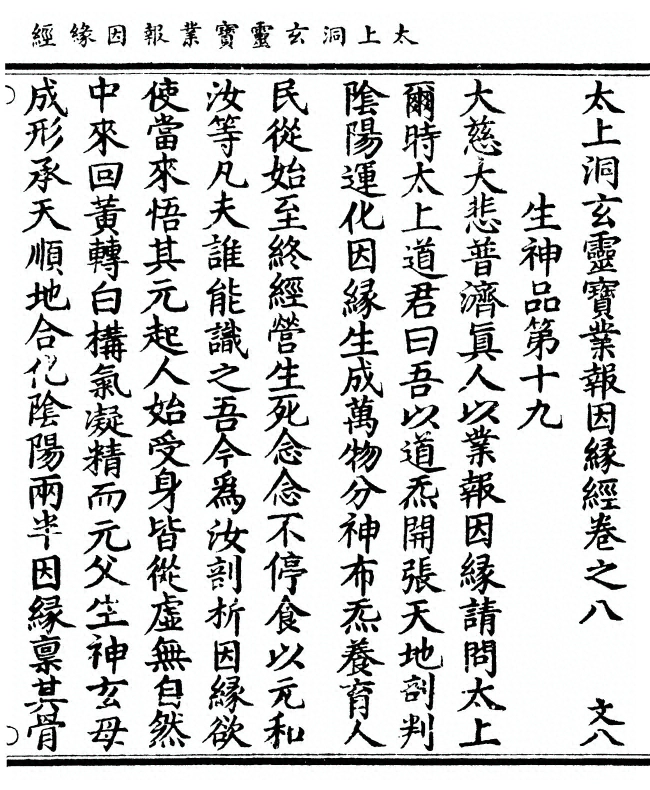 太上洞玄靈寶業報因緣經
太上洞玄靈寶業報因緣經卷之八 文八
生神品第十九
大慈大悲普濟真人以業報因緣請問太上
爾時太上道君曰吾以道炁開張天地剖判
陰陽運化因緣生成萬物分神布炁養育人
民從始至終經營生死念念不停食以元和
汝等凡夫誰能識之吾今爲汝剖析因緣欲
使當來悟其元起人始受身皆從虛無自然
中來回黃轉白構氣凝精而元父生神玄母
成形承天順地合化陰陽兩半因緣稟其骨